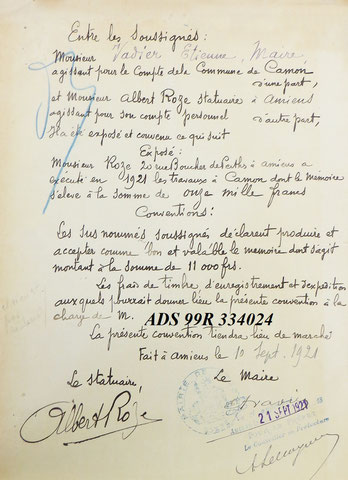 Entre les Soussignés:
Monsieur Vadier Etienne, Maire,
agissant pour le Compte de la Commune de Camon
d'une part,
et Monsieur Albert Roze statuaire à Amiens
agissant pour son compte personnel d'autre part,
Il a été exposé et convenu ce qui suit
Exposé:
Monsieur Roze 2 rue Boucher de Perthes à amiens a
exécuté en 1921 les travaux à Camon dont le Memoire
s'élève à la somme de onze mille francs
Conventions:
Les sus nommés soussignés déclarent produire et
accepter comme bon et valable le memoire dont s'agit
montant à la somme de 11 000 frs.
Les frais de timbre d'enregistrement et d'expédition
auxquels pourrait donner lieu la présente convention à la
charge de M.
ADS 99R 334024
La présente convention tiendra lieu de marché
Fait à amiens le 10 Sept. 1921
Le statuaire, Le Maire
Albert Roze
21 SEPT 1921